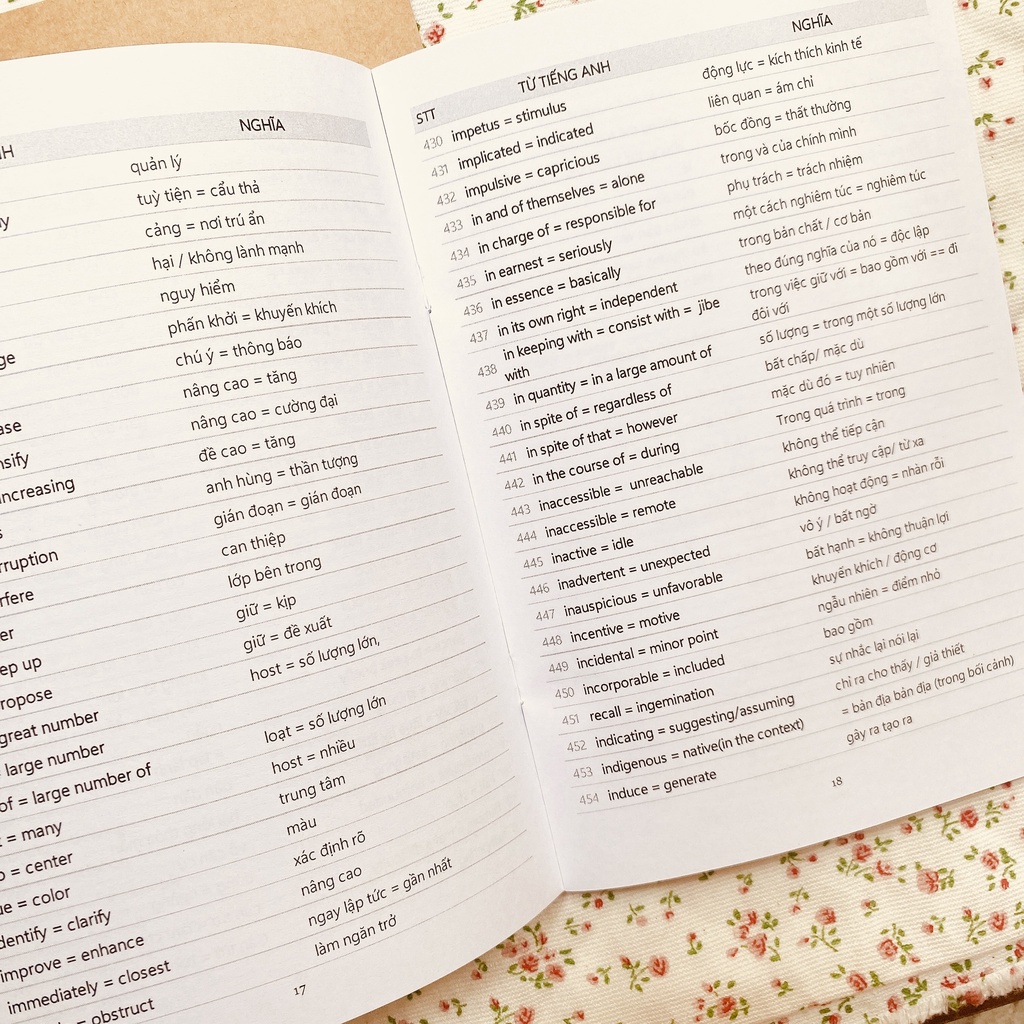 NGHĨA
quản lý
tuỳ tiện = cẩu thả
cảng = nơi trú ẩn
hại / không lành mạnh
nguy hiểm
phấn khởi = khuyến khích
chú ý = thông báo
nâng cao = tăng
nâng cao = cường đại
đề cao = tăng
increasing anh hùng = thần tượng
gián đoạn = gián đoạn
can thiệp
lớp bên trong
up giữ = kịp
giữ = đề xuất
great number host = số lượng lớn,
large number
of = large number of loạt = số lượng lớn
= many host = nhiều
= center trung tâm
= color màu
= clarify xác định rõ
improve = enhance nâng cao
immediately = closest ngay lập tức = gần nhất
= obstruct làm ngăn trở
17
STT TỪ TIẾNG ANH NGHĨA
430 impetus = stimulus động lực = kích thích kinh tế
431 implicated = indicated liên quan = ám chỉ
432 impulsive = capricious bốc đồng = thất thường
433 in and of themselves = alone trong và của chính mình
434 in charge of = responsible for phụ trách = trách nhiệm
435 in earnest = seriously một cách nghiêm túc = nghiêm túc
436 in essence = basically trong bản chất / cơ bản
437 in its own right = independent theo đúng nghĩa của nó = độc lập
438 in keeping with = consist with = jibe trong việc giữ với = bao gồm với == đi
with đôi với
439 in quantity = in a large amount of số lượng = trong một số lượng lớn
440 in spite of = regardless of bất chấp/ mặc dù
441 in spite of that = however mặc dù đó = tuy nhiên
442 in the course of = during Trong quá trình = trong
443 inaccessible = unreachable không thể tiếp cận
444 inaccessible = remote không thể truy cập/ từ xa
445 inactive = idle không hoạt động = nhàn rỗi
446 inadvertent = unexpected vô ý / bất ngờ
447 inauspicious = unfavorable bất hạnh = không thuận lợi
448 incentive = motive khuyến khích / động cơ
449 incidental = minor point ngẫu nhiên = điểm nhỏ
450 incorporable = included bao gồm
451 recall = ingemination sự nhắc lại nói lại
452 indicating = suggesting/assuming chỉ ra cho thấy / giả thiết
453 indigenous = native(in the context) = bản địa bản địa (trong bối cảnh)
454 induce = generate gây ra tạo ra
18